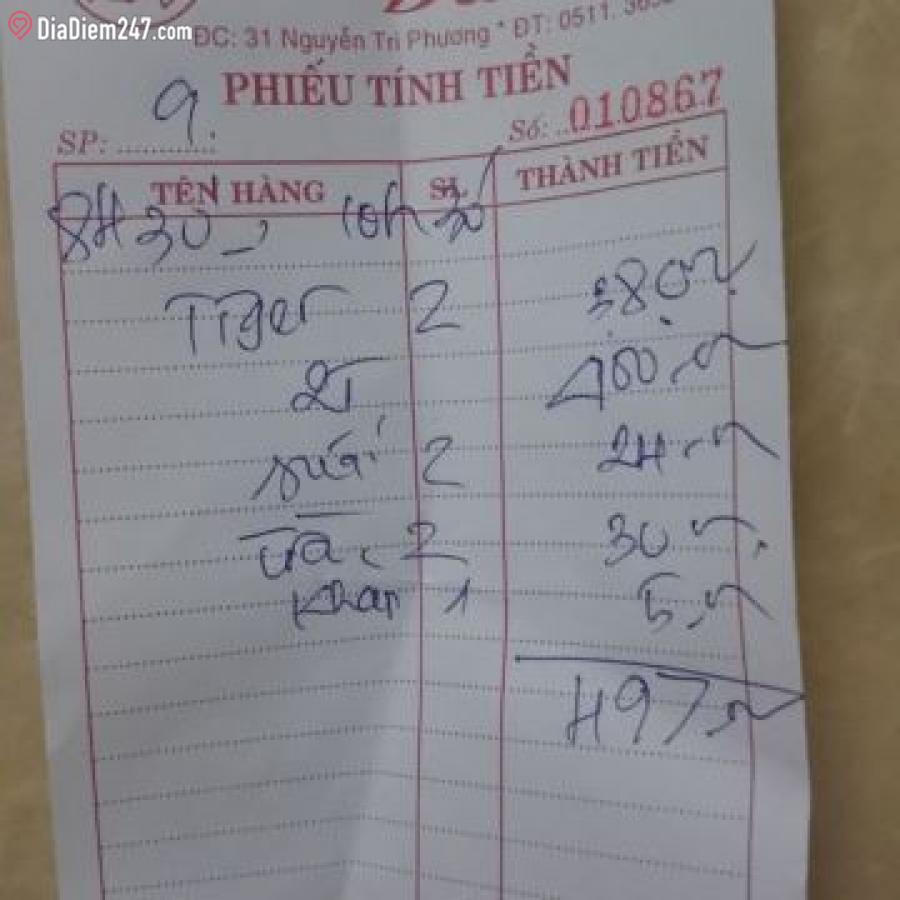 DiaDiem247.com
ĐC: 31 Nguyễn Tri Phương * ĐT: 0511.
PHIẾU TÍNH TIỀN
SP: 9. Số: 010867
TÊN HÀNG SL THÀNH TIỀN
8H30 10h30
Tiger 2 38.000
2T 400.000
suối 2 24.000
2 30.000
Khan 1 5.000
497.000